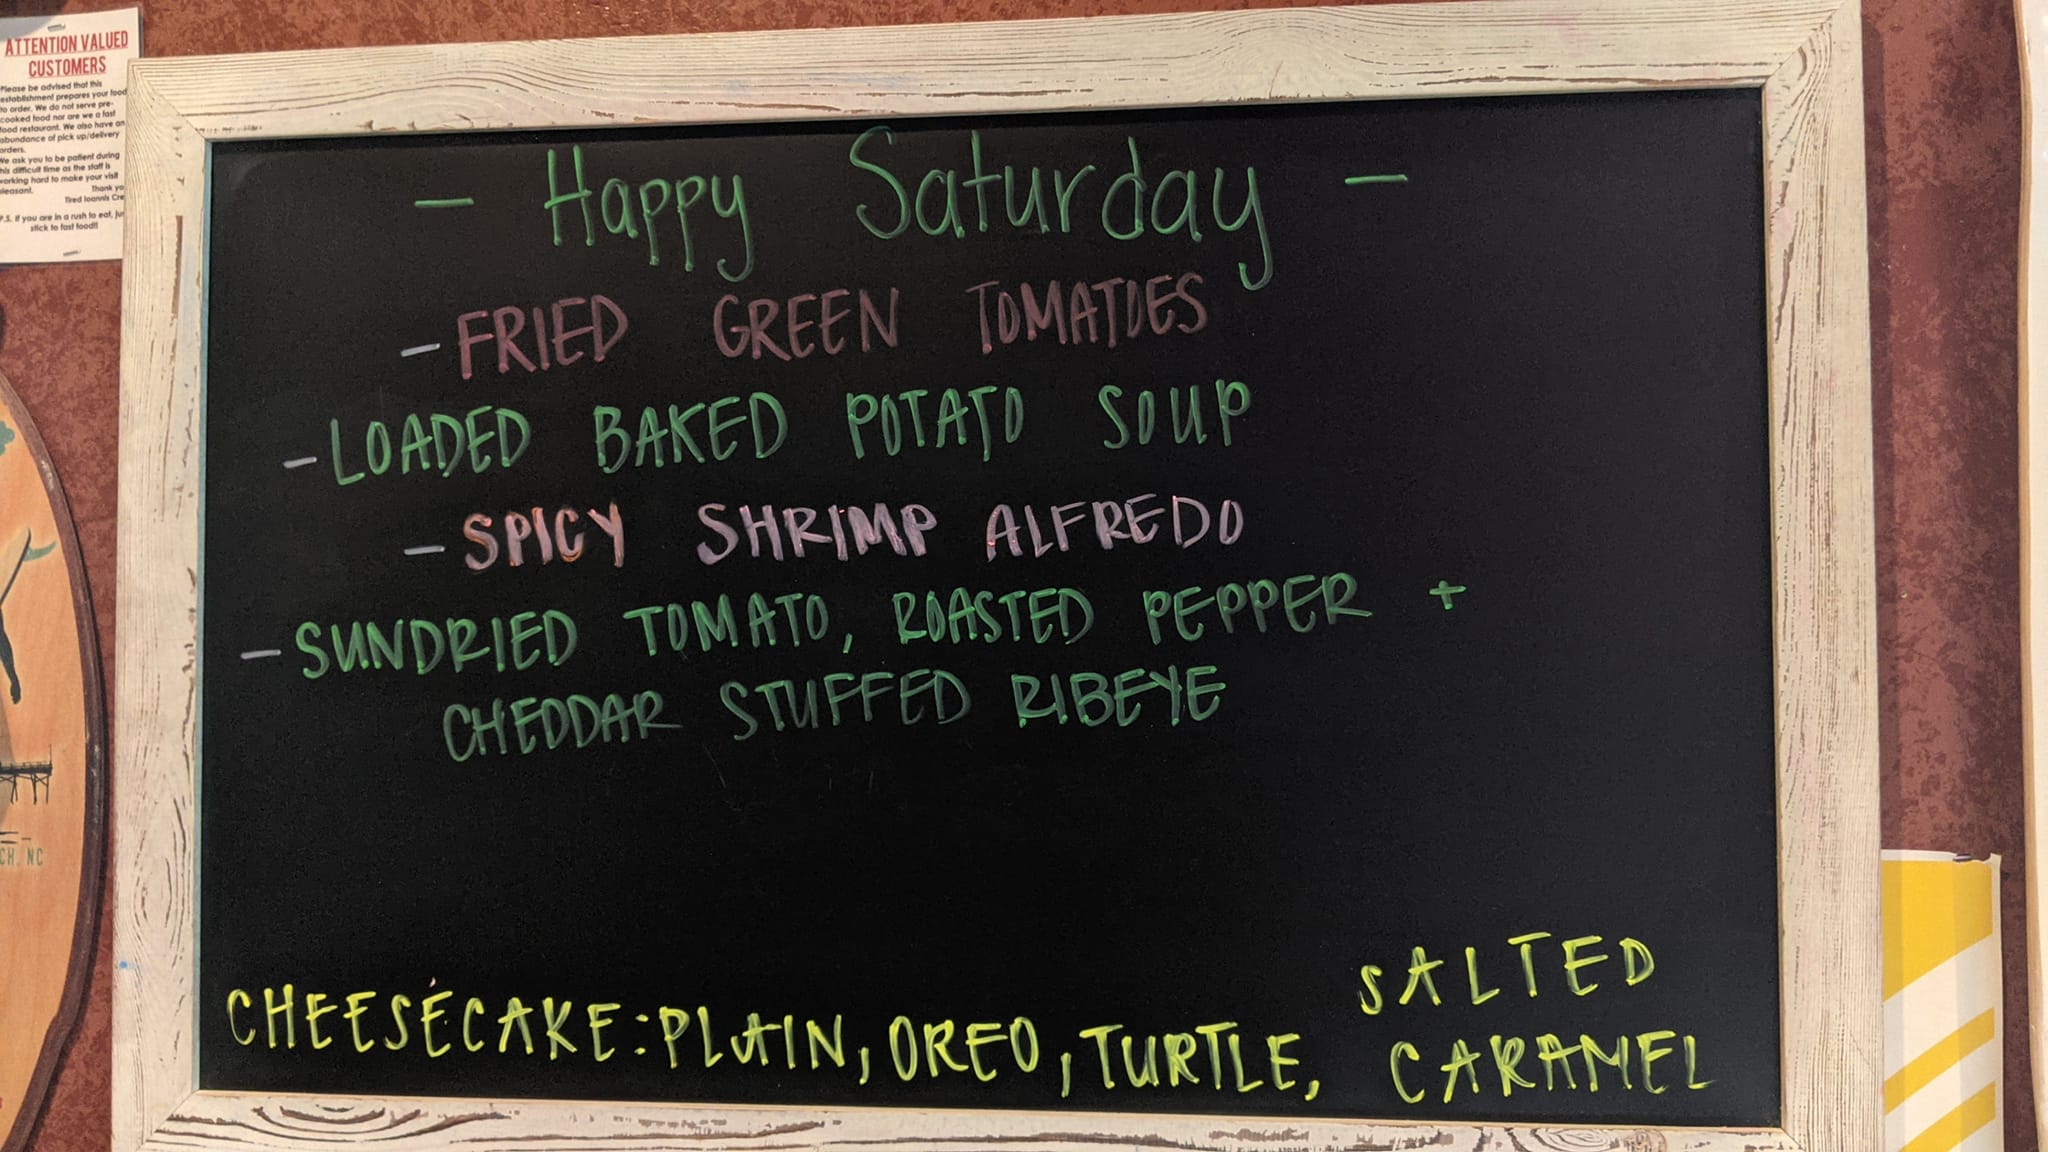 ATTENTION VALUED
CUSTOMERS
Please be advised that this
establishment prepares your food
to order. We do not serve pre-
cooked food nor are we a fast
food restaurant. We also have an
abundance of pick up/delivery
orders.
We ask you to be patient during
this difficult time as the staff is
working hard to make your visit
pleasant.
Thank yo
Tired Ioannis Cre
P.S. If you are in a rush to eat, jus
stick to fast food!!
- Happy Saturday -
- FRIED GREEN TOMATOES
- LOADED BAKED POTATO SOUP
- SPICY SHRIMP ALFREDO
- SUNDRIED TOMATO, ROASTED PEPPER +
CHEDDAR STUFFED RIBEYE
CHEESECAKE: PLAIN, OREO, TURTLE, SALTED
CARAMEL
CH, NC